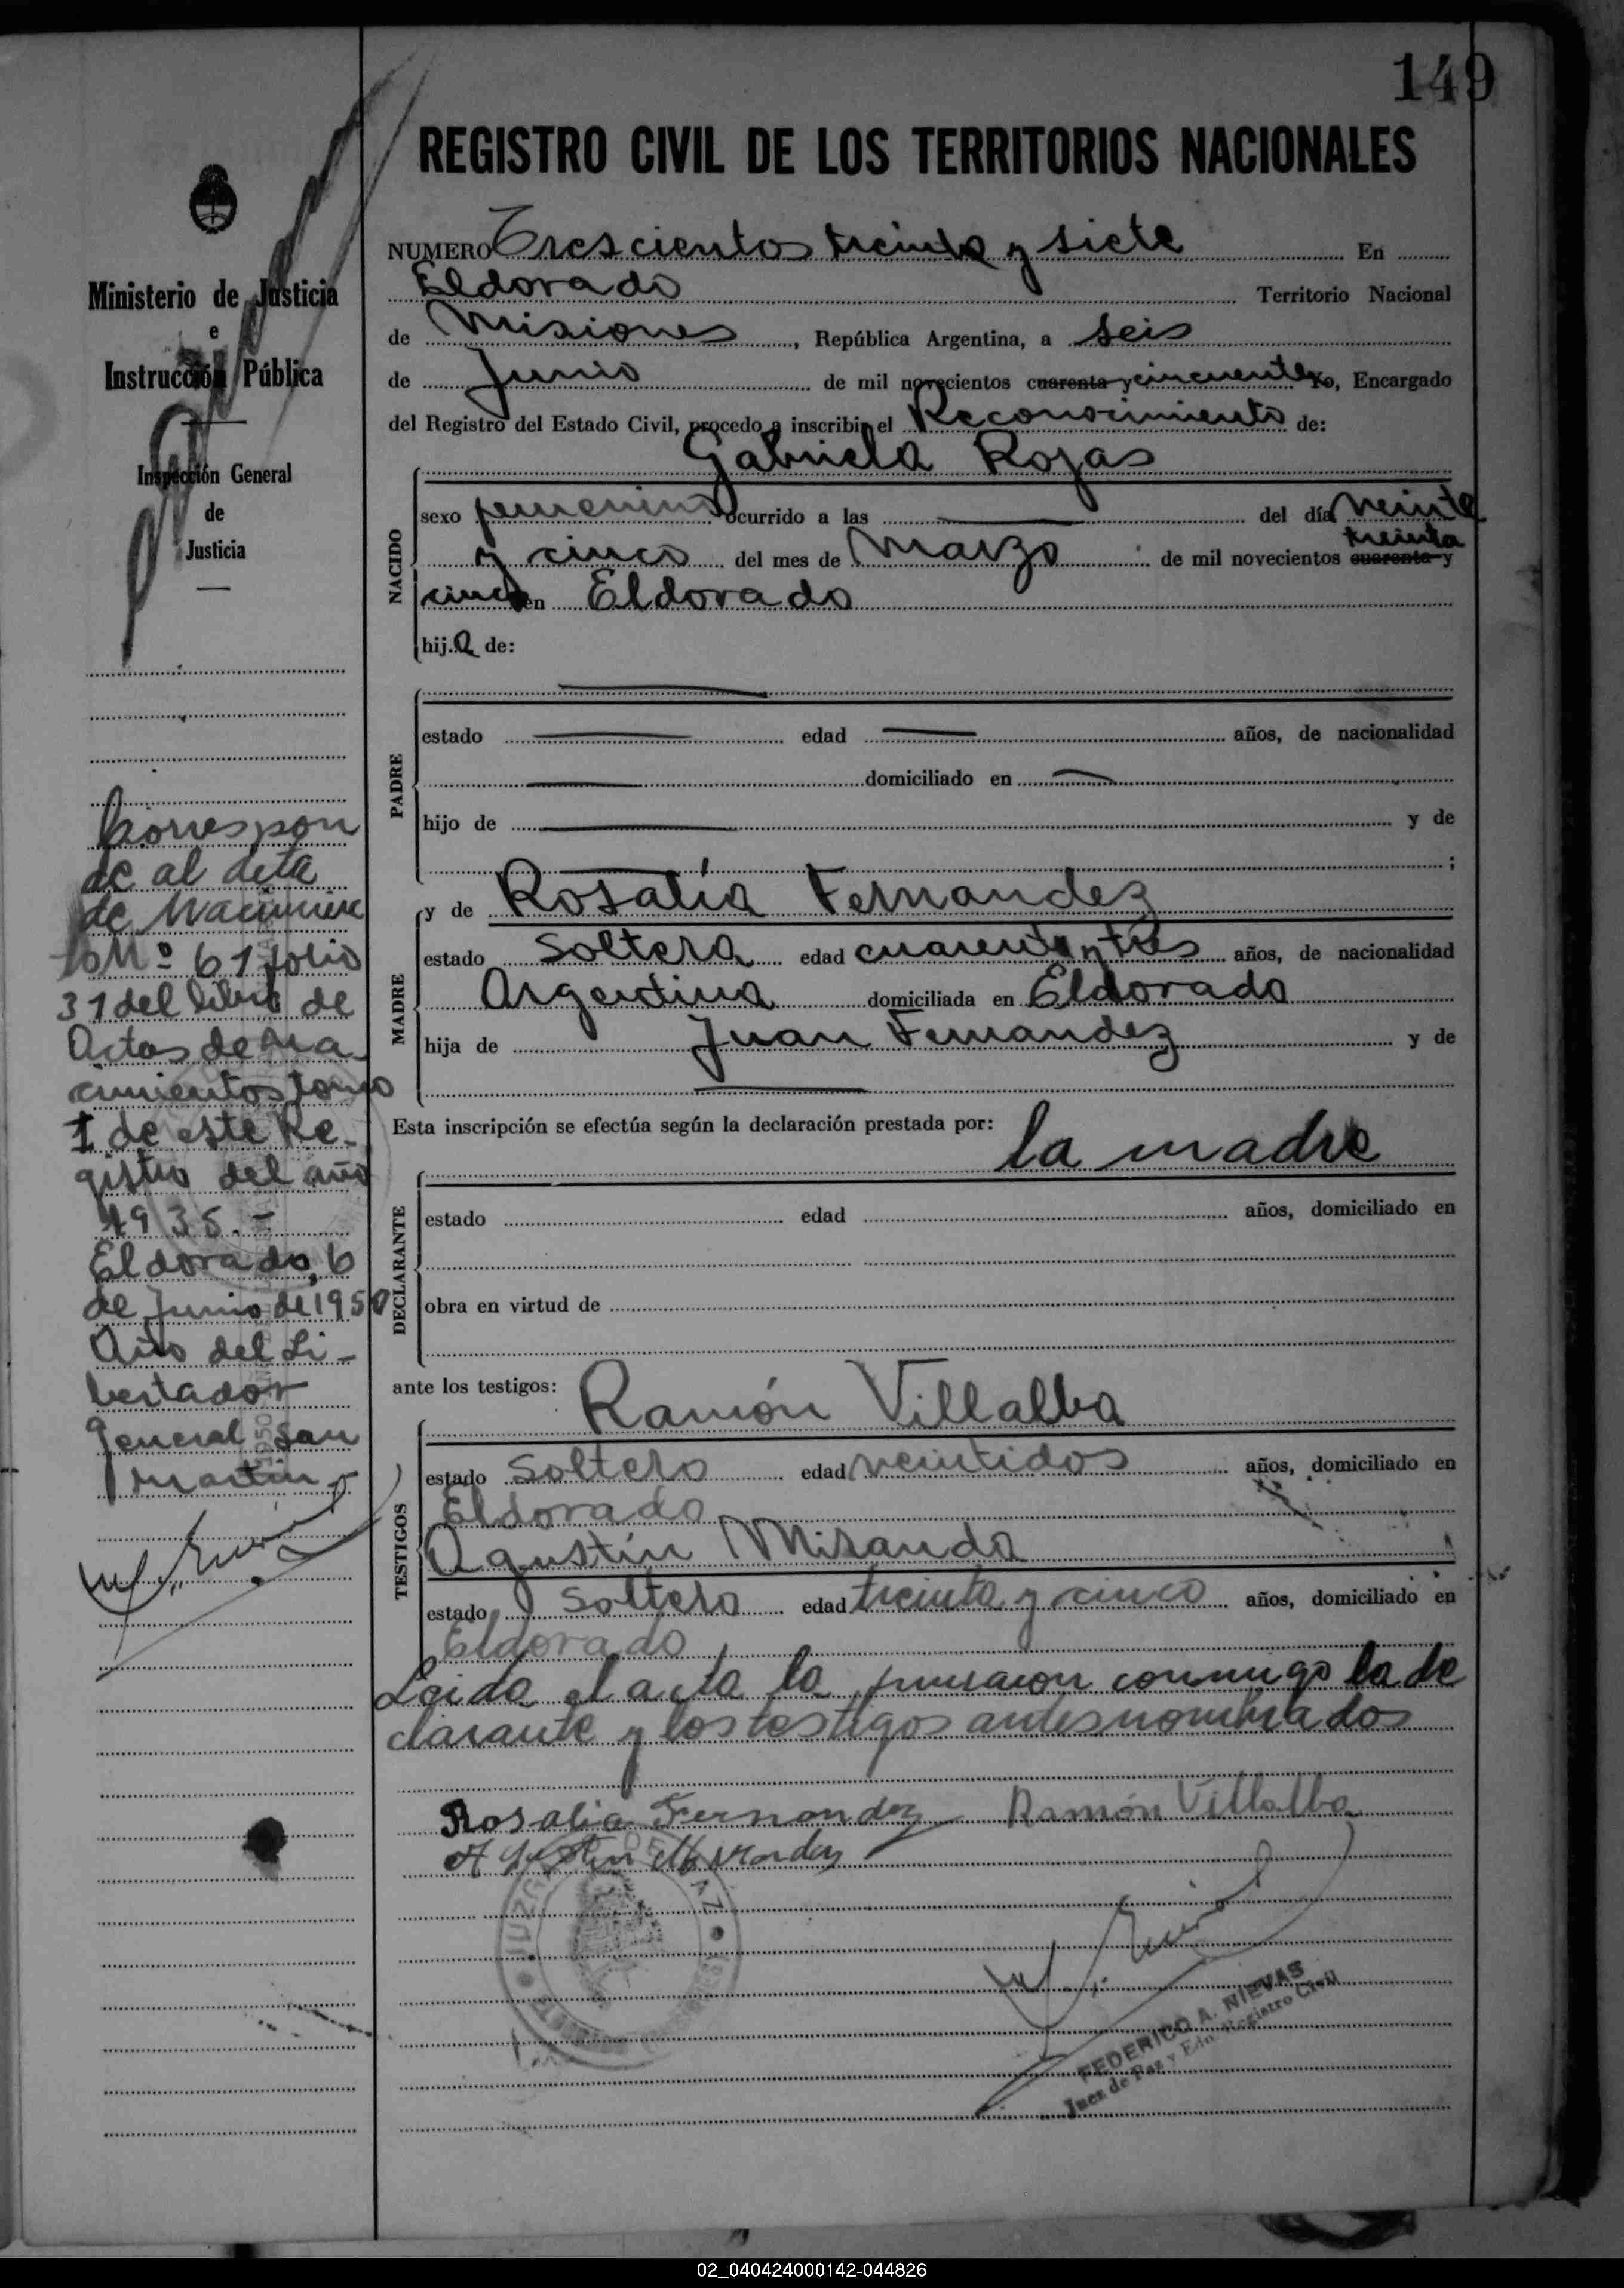 149
REGISTRO CIVIL DE LOS TERRITORIOS NACIONALES
Ministerio de Justicia
e
Instrucción Pública
Inspección General
de
Justicia
NUMERO Trescientos treinta y siete En
Eldorado Territorio Nacional
de Misiones, República Argentina, a seis
de Junio de mil novecientos cuarenta y cincuenta Yo, Encargado
del Registro del Estado Civil, procedo a inscribir el Reconocimiento de:
Gabriela Rojas
NACIDO
sexo femenino ocurrido a las del día veinte
treinta
y cinco del mes de Marzo de mil novecientos cuarenta y
cinco en Eldorado
hija de:
PADRE
estado edad años, de nacionalidad
domiciliado en
hijo de y de
;
MADRE
y de Rosalía Fernandez
estado Soltera edad cuarenta y tres años, de nacionalidad
Argentina domiciliada en Eldorado
hija de Juan Fernandez y de
Esta inscripción se efectúa según la declaración prestada por:
la madre
DECLARANTE
estado edad años, domiciliado en
obra en virtud de
ante los testigos: Ramón Villalba
TESTIGOS
estado Soltero edad veintidos años, domiciliado en
Eldorado
Agustín Miranda
estado Soltero edad treinta y cinco años, domiciliado en
Eldorado
Leida el acta la firmaron conmigo la de
clarante y los testigos antes nombrados
Rosalia Fernandez Ramón Villalba
Agustin Miranda
FEDERICO A. NIEVAS
Juez de Paz y Edo. Registro Civil
Correspon
de al acta
de Nacimien
to Nº 61 folio
31 del libro de
Actas de Na-
cimientos tomo
1 de este Re-
gistro del año
1935.-
Eldorado, 6
de Junio de 1950
Año del Li-
bertador
General San
Martín.-
02_040424000142-044826